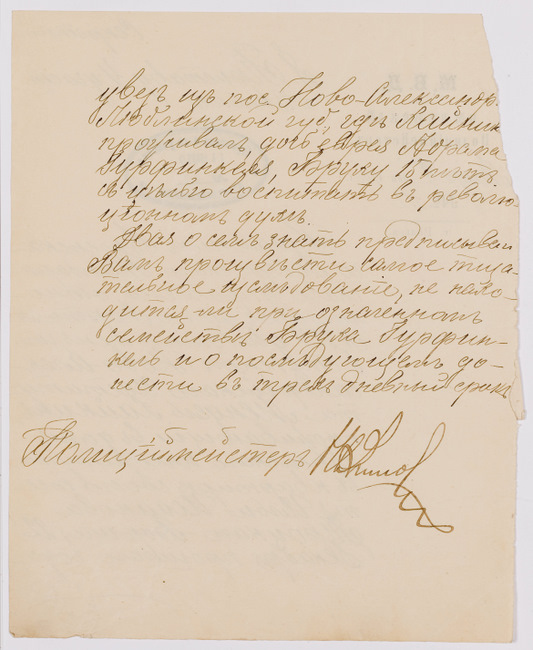 увез из пос. Ново-Александр.
Люблинской губ., где Кайник
проживал, дочь еврея Абрама
Гурфинкеля, Бруху 15 лѣтъ
съ цѣлью воспитать въ револю-
ціонномъ духѣ.
Давая о семъ знать предписываю
Вамъ произвести самое тща-
тельное изслѣдованіе, не нахо-
дится-ли при означенномъ
семействѣ Бруха Гурфин-
кель и о послѣдующемъ до-
нести въ трехъ дневный срокъ
Полиціймейстеръ